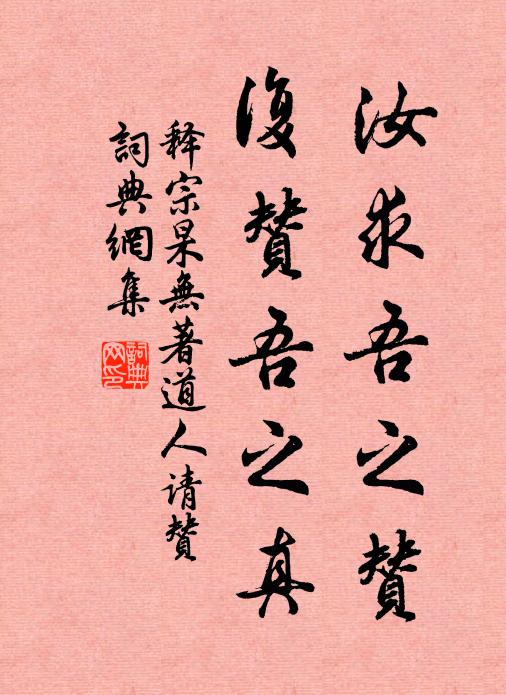 汝求吾之赞
復赞吾之真
释宗杲無著道人请赞
詞典網集
詞典網印